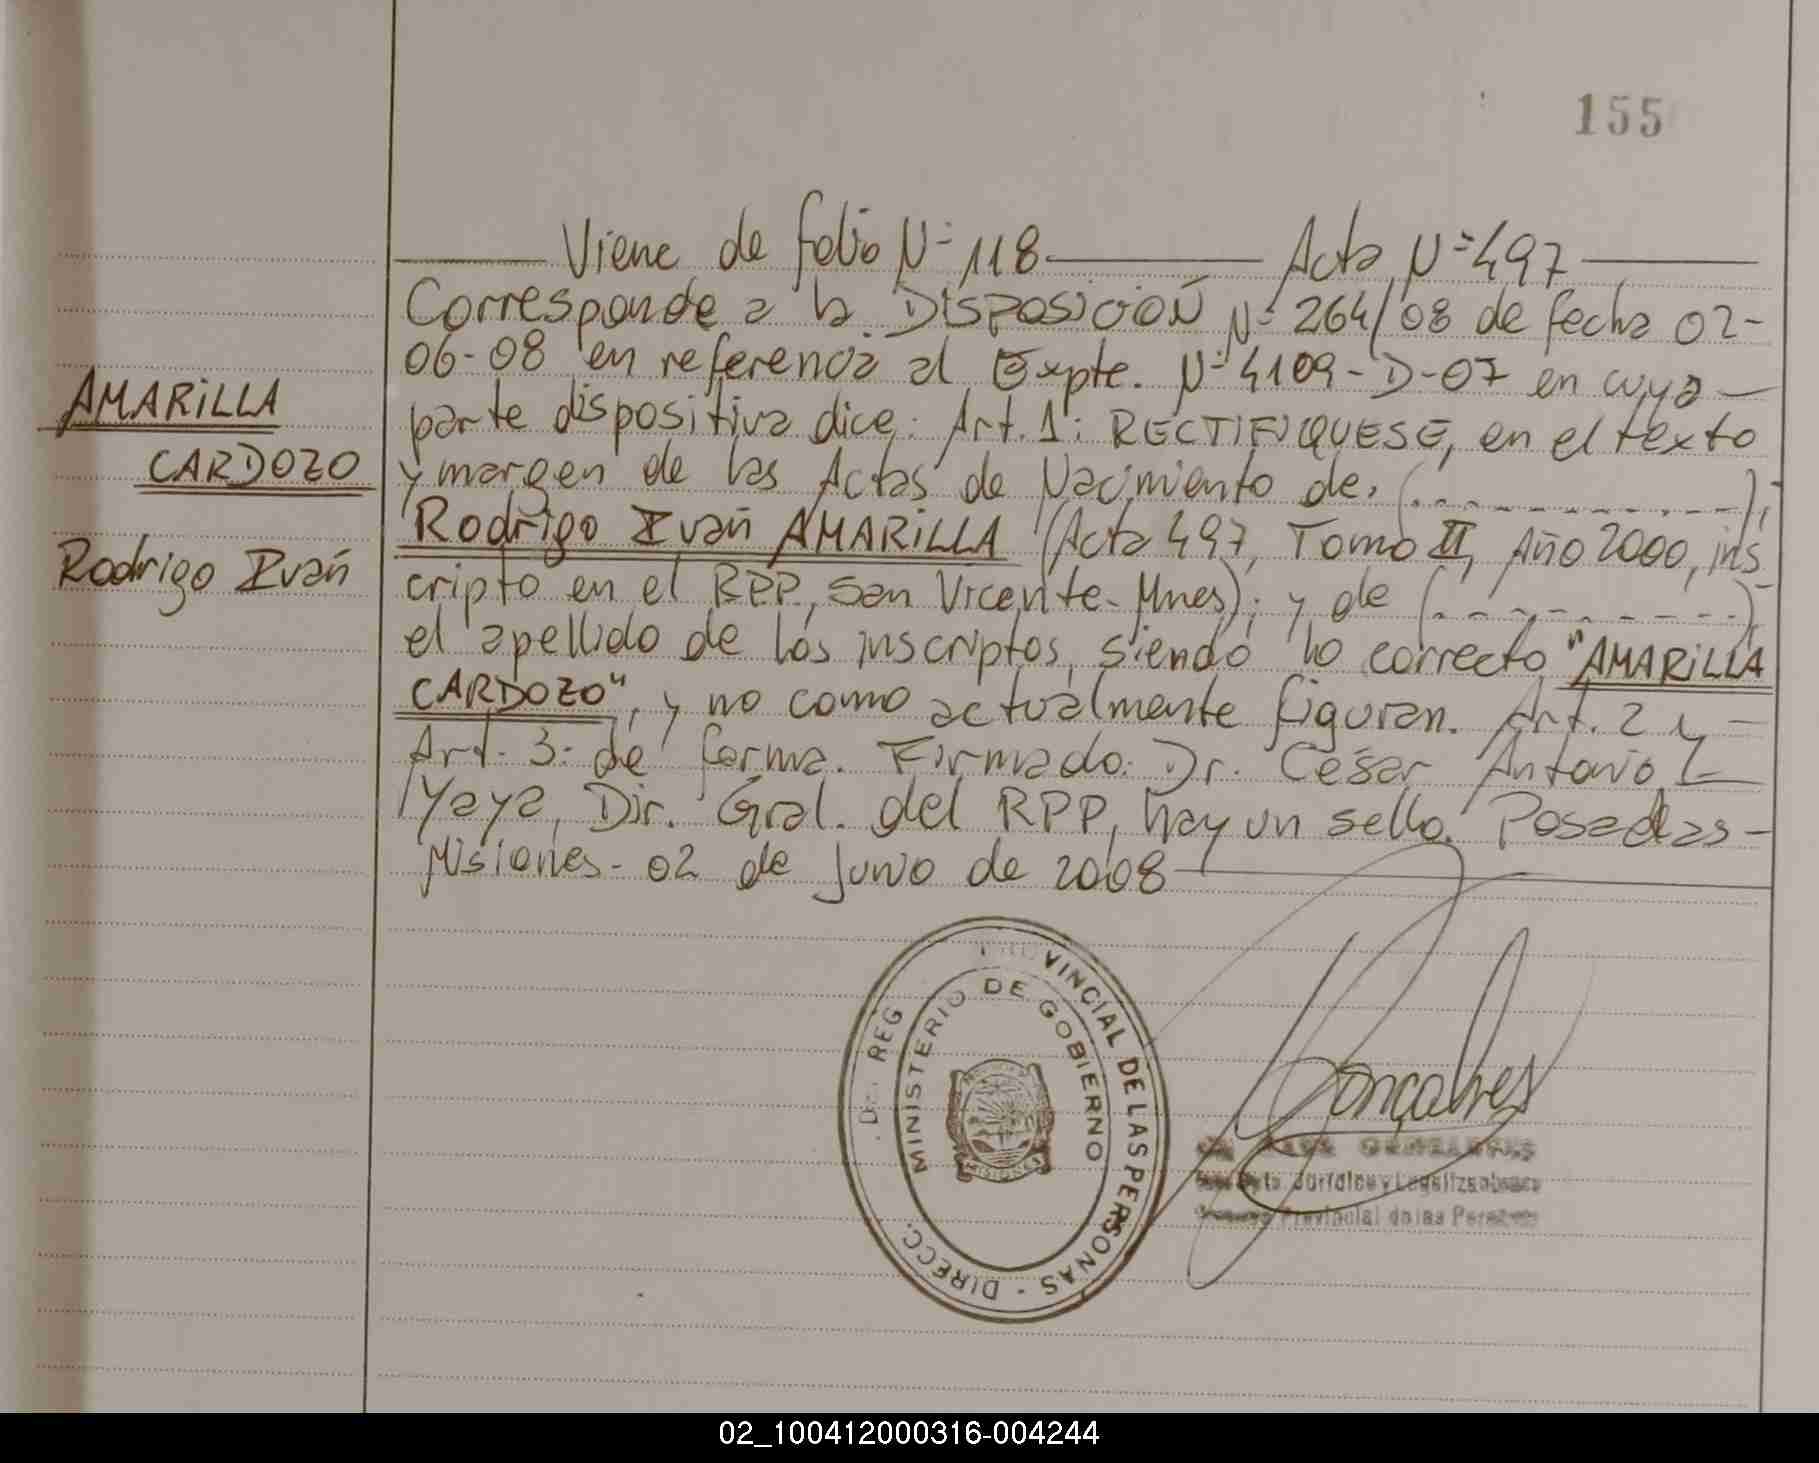 155
Viene de folio N= 118 Acta N=497
Corresponde a la DISPOSICIÓN N= 264/08 de fecha 02-
06-08 en referencia al Expte. N=4109-D-07 en cuya
parte dispositiva dice: Art. 1: RECTIFIQUESE, en el texto
y margen de las Actas de Nacimiento de: (.-----------);
Rodrigo Iván AMARiLLA (Acta 497, Tomo II, Año 2000, ins
cripto en el RPP, San Vicente- Mnes); y de (-----------)
el apellido de los inscriptos, siendo lo correcto "AMARiLLA
CARDOZO", y no como actualmente figuran. Art. 2 y
Art. 3: de forma. Firmado: Dr. César Antonio
Yaya, Dir. Gral. del RPP, hay un sello. Posadas-
Misiones- 02 de Junio de 2008
AMARiLLA
CARDOZO
Rodrigo Iván
DIRECC. DEL REG. PROVINCIAL DE LAS PERSONAS -
MINISTERIO DE GOBIERNO
MISIONES
Gonçalves
Jurídico y Legalizaciones
Provincial de las Personas
02_100412000316-004244